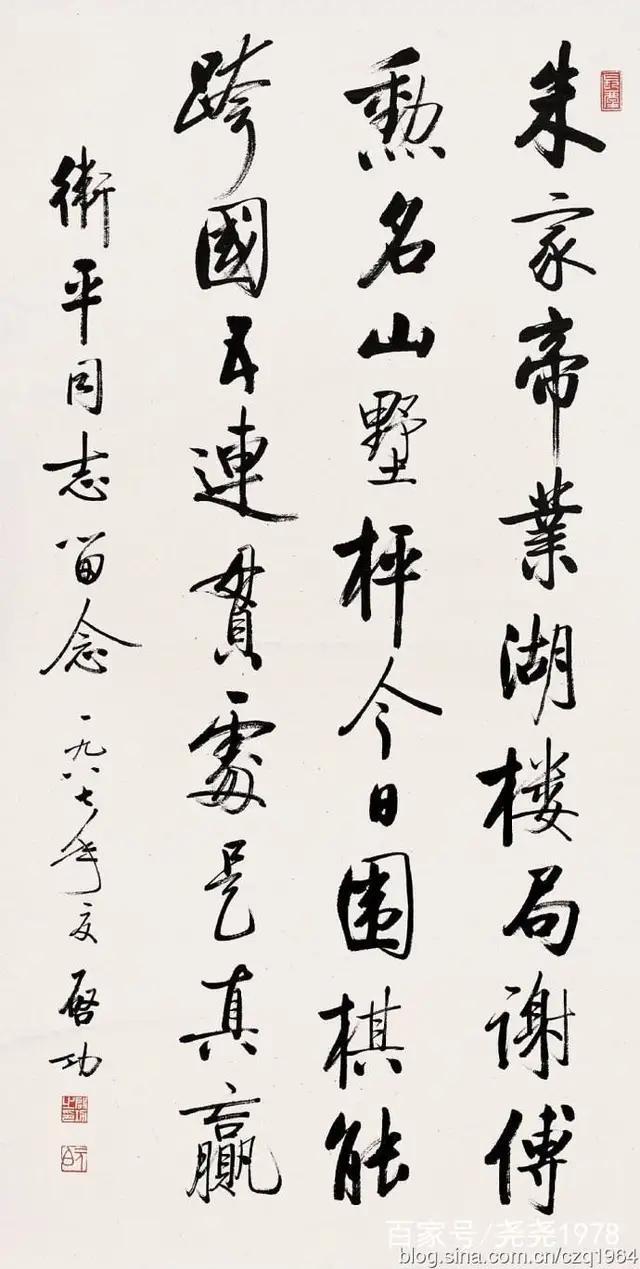 朱家帝業湖楼局謝傅
勲名山墅枰今日围棋能
跨國互連貫處是真贏
衛平同志留念 一九八七年夏 启功
百家号/尧尧1978
blog.sina.com.cn/czq1964